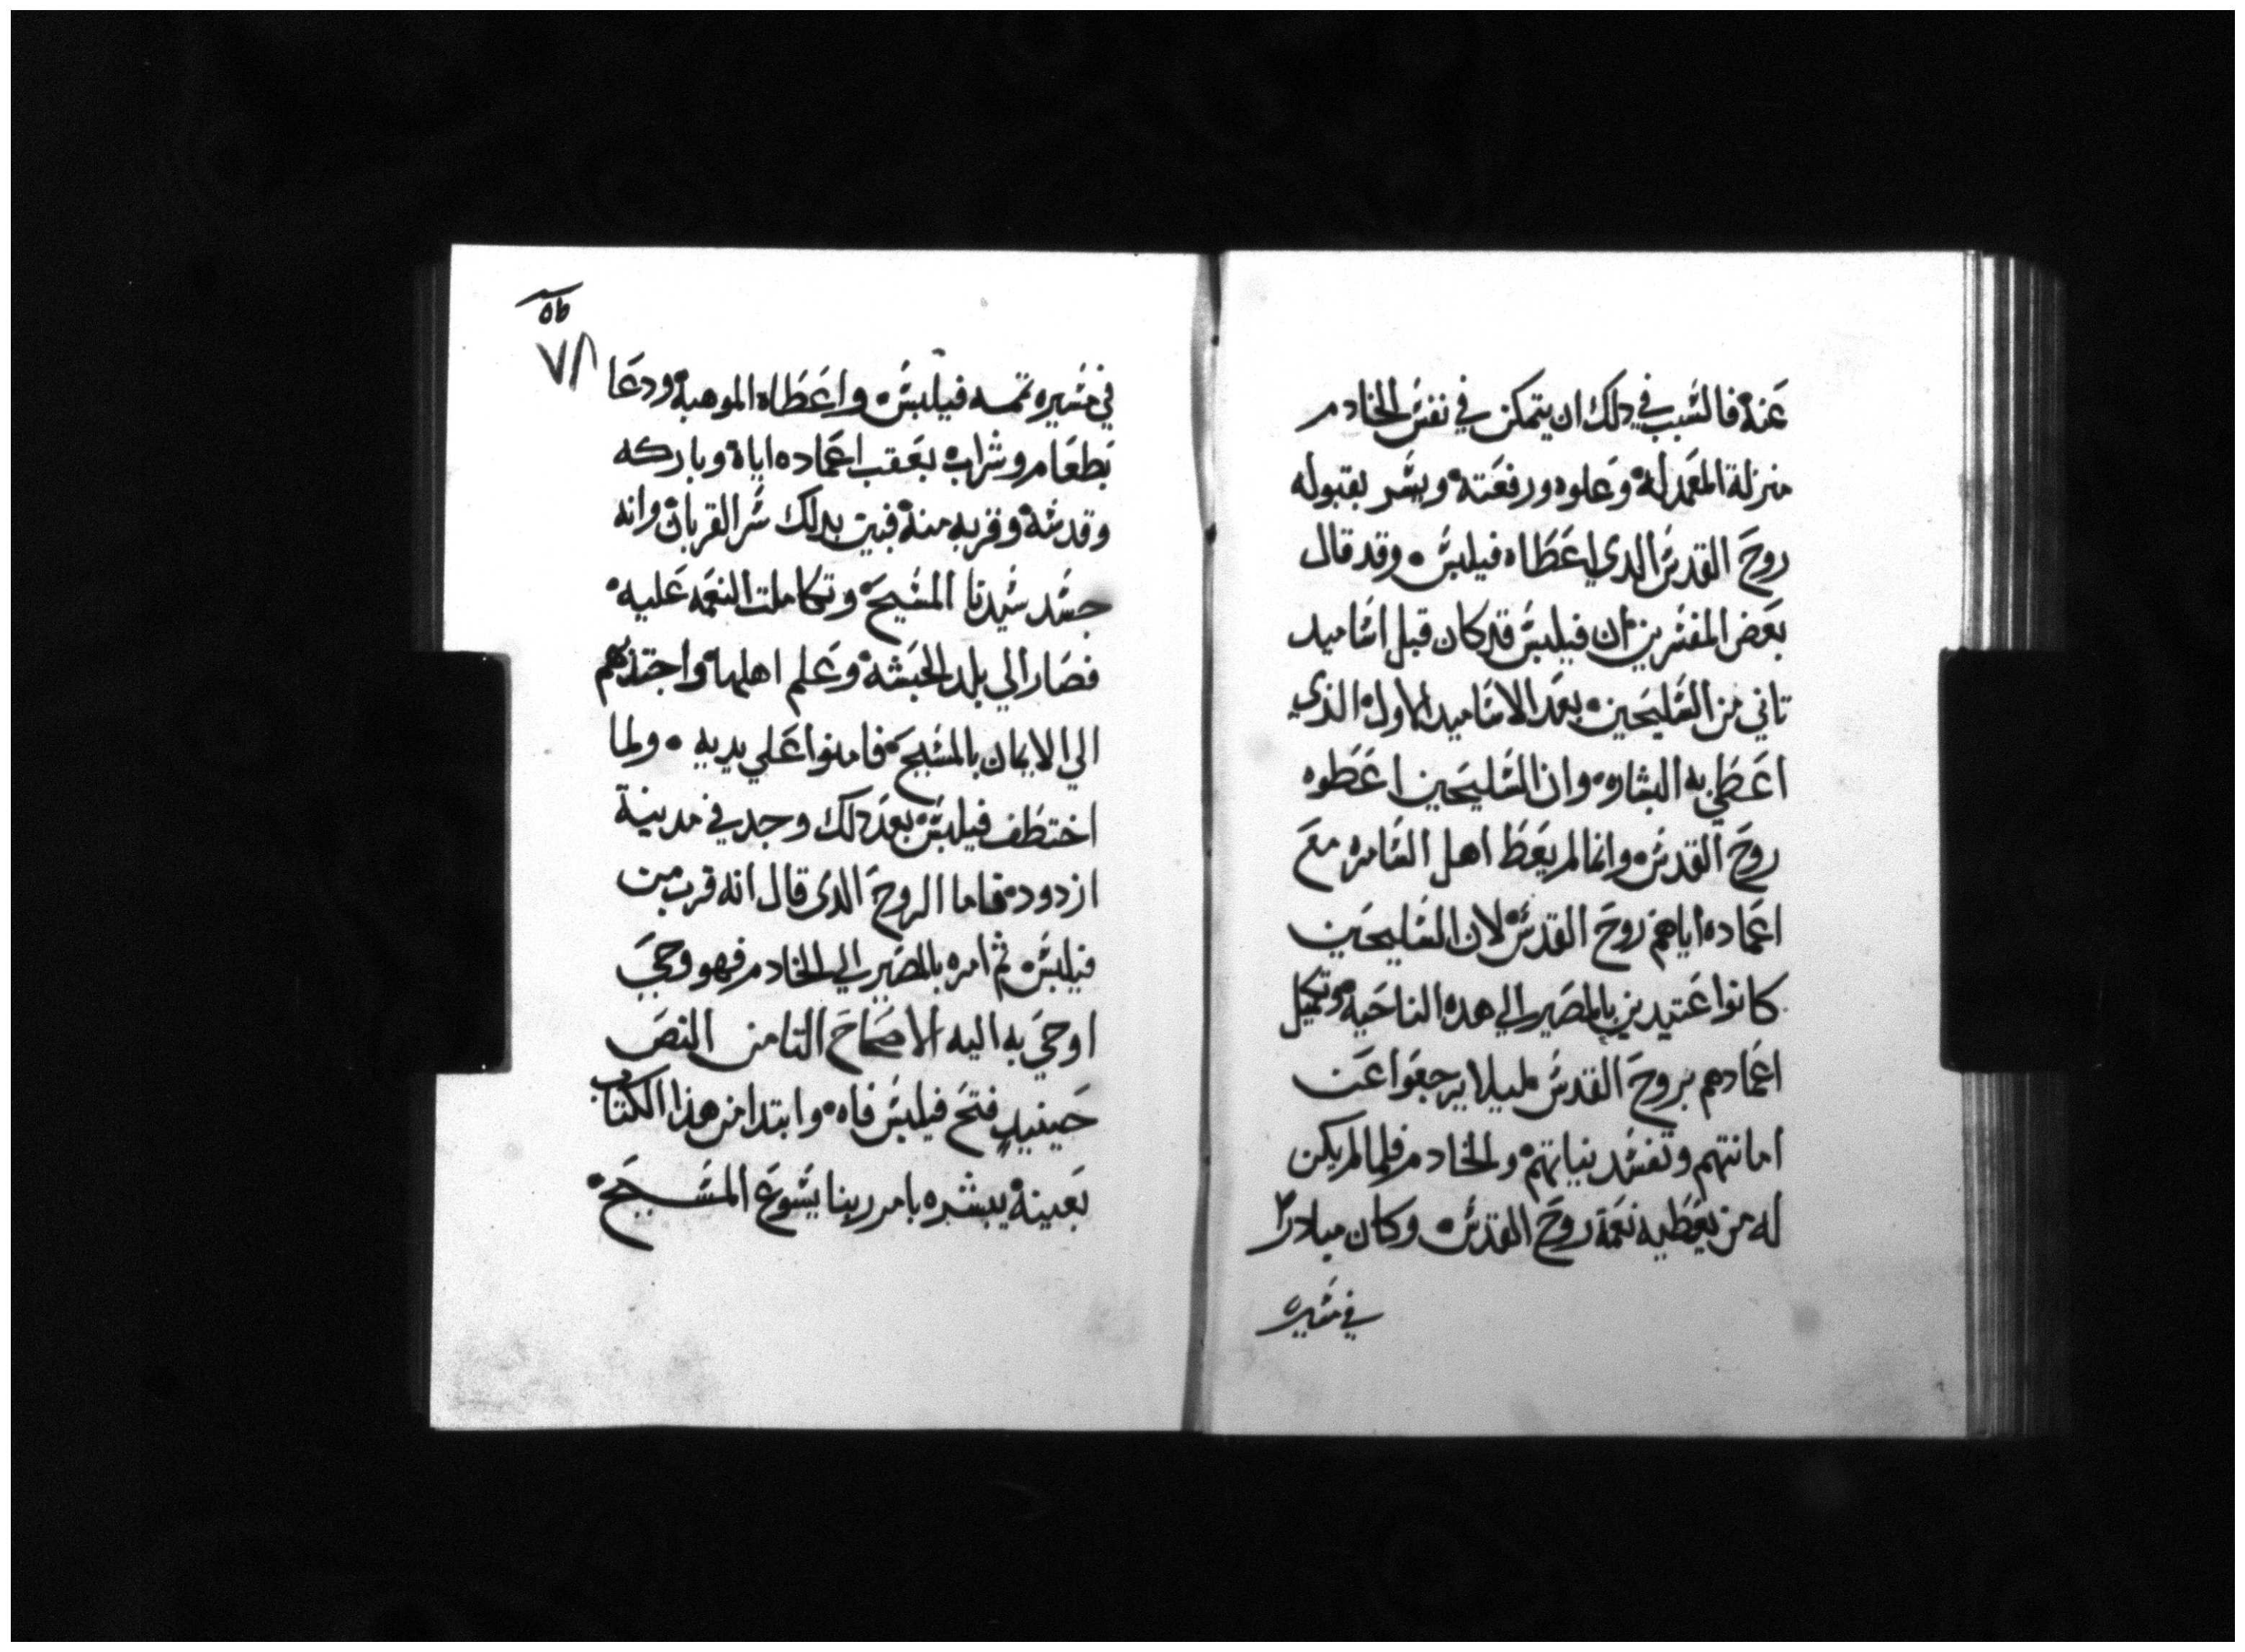 عنه فالسبب في دلك ان يتمكن في نفس الخادم
منزلة المعمد له وعلوه ورفعته ويسر بقبوله
روح القدس الدي اعطاه فيلبس وقد قال
بعض المفسرين ان فيلبس قد كان قبل اساميد
تاني من السليحين بعد الاساميد الاول الذي
اعطي به البشاره وان السليحين اعطوه
روح القدس وانما لم يعط اهل السامره مع
اعماده اياهم روح القدس لان السليحين
كانوا عتيدين بالمصير الي هده الناحيه وتكميل
اعمادهم بروح القدس ليلا يرجعوا عن
امانتهم وتفسد نياتهم والخادم فلما لم يكن
له من يعطيه نعمة روح القدس وكان مبادرا
في مسيره
٧٨
في مسيره تممه فيلبس واعطاه الموهبه ودعا
بطعام وشراب بعقب اعماده اياه وباركه
وقدسه وقربه منه فبين بدلك سر القربان وانه
جسد سيدنا المسيح وتكاملت النعمه عليه
فصار الي بلد الحبشه وعلم اهلها واجتذبهم
الي الايمان بالمسيح فامنوا علي يديه ولما
اختطف فيلبس بعد دلك وجد في مدينة
ازدود فاما الروح الدي قال انه قرب من
فيلبس ثم امره بالمصير الي الخادم فهو وحي
اوحي به اليه الاصحاح التامن النص
حينيد فتح فيلبس فاه وابتدا من هذا الكتاب
بعينه يبشره بامر ربنا يسوع المسيح